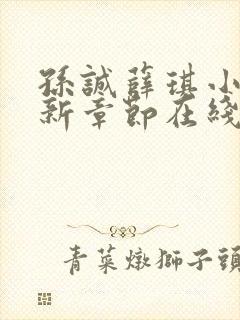 孫誠薛琪小
新章節在綫
青菜燉獅子頭